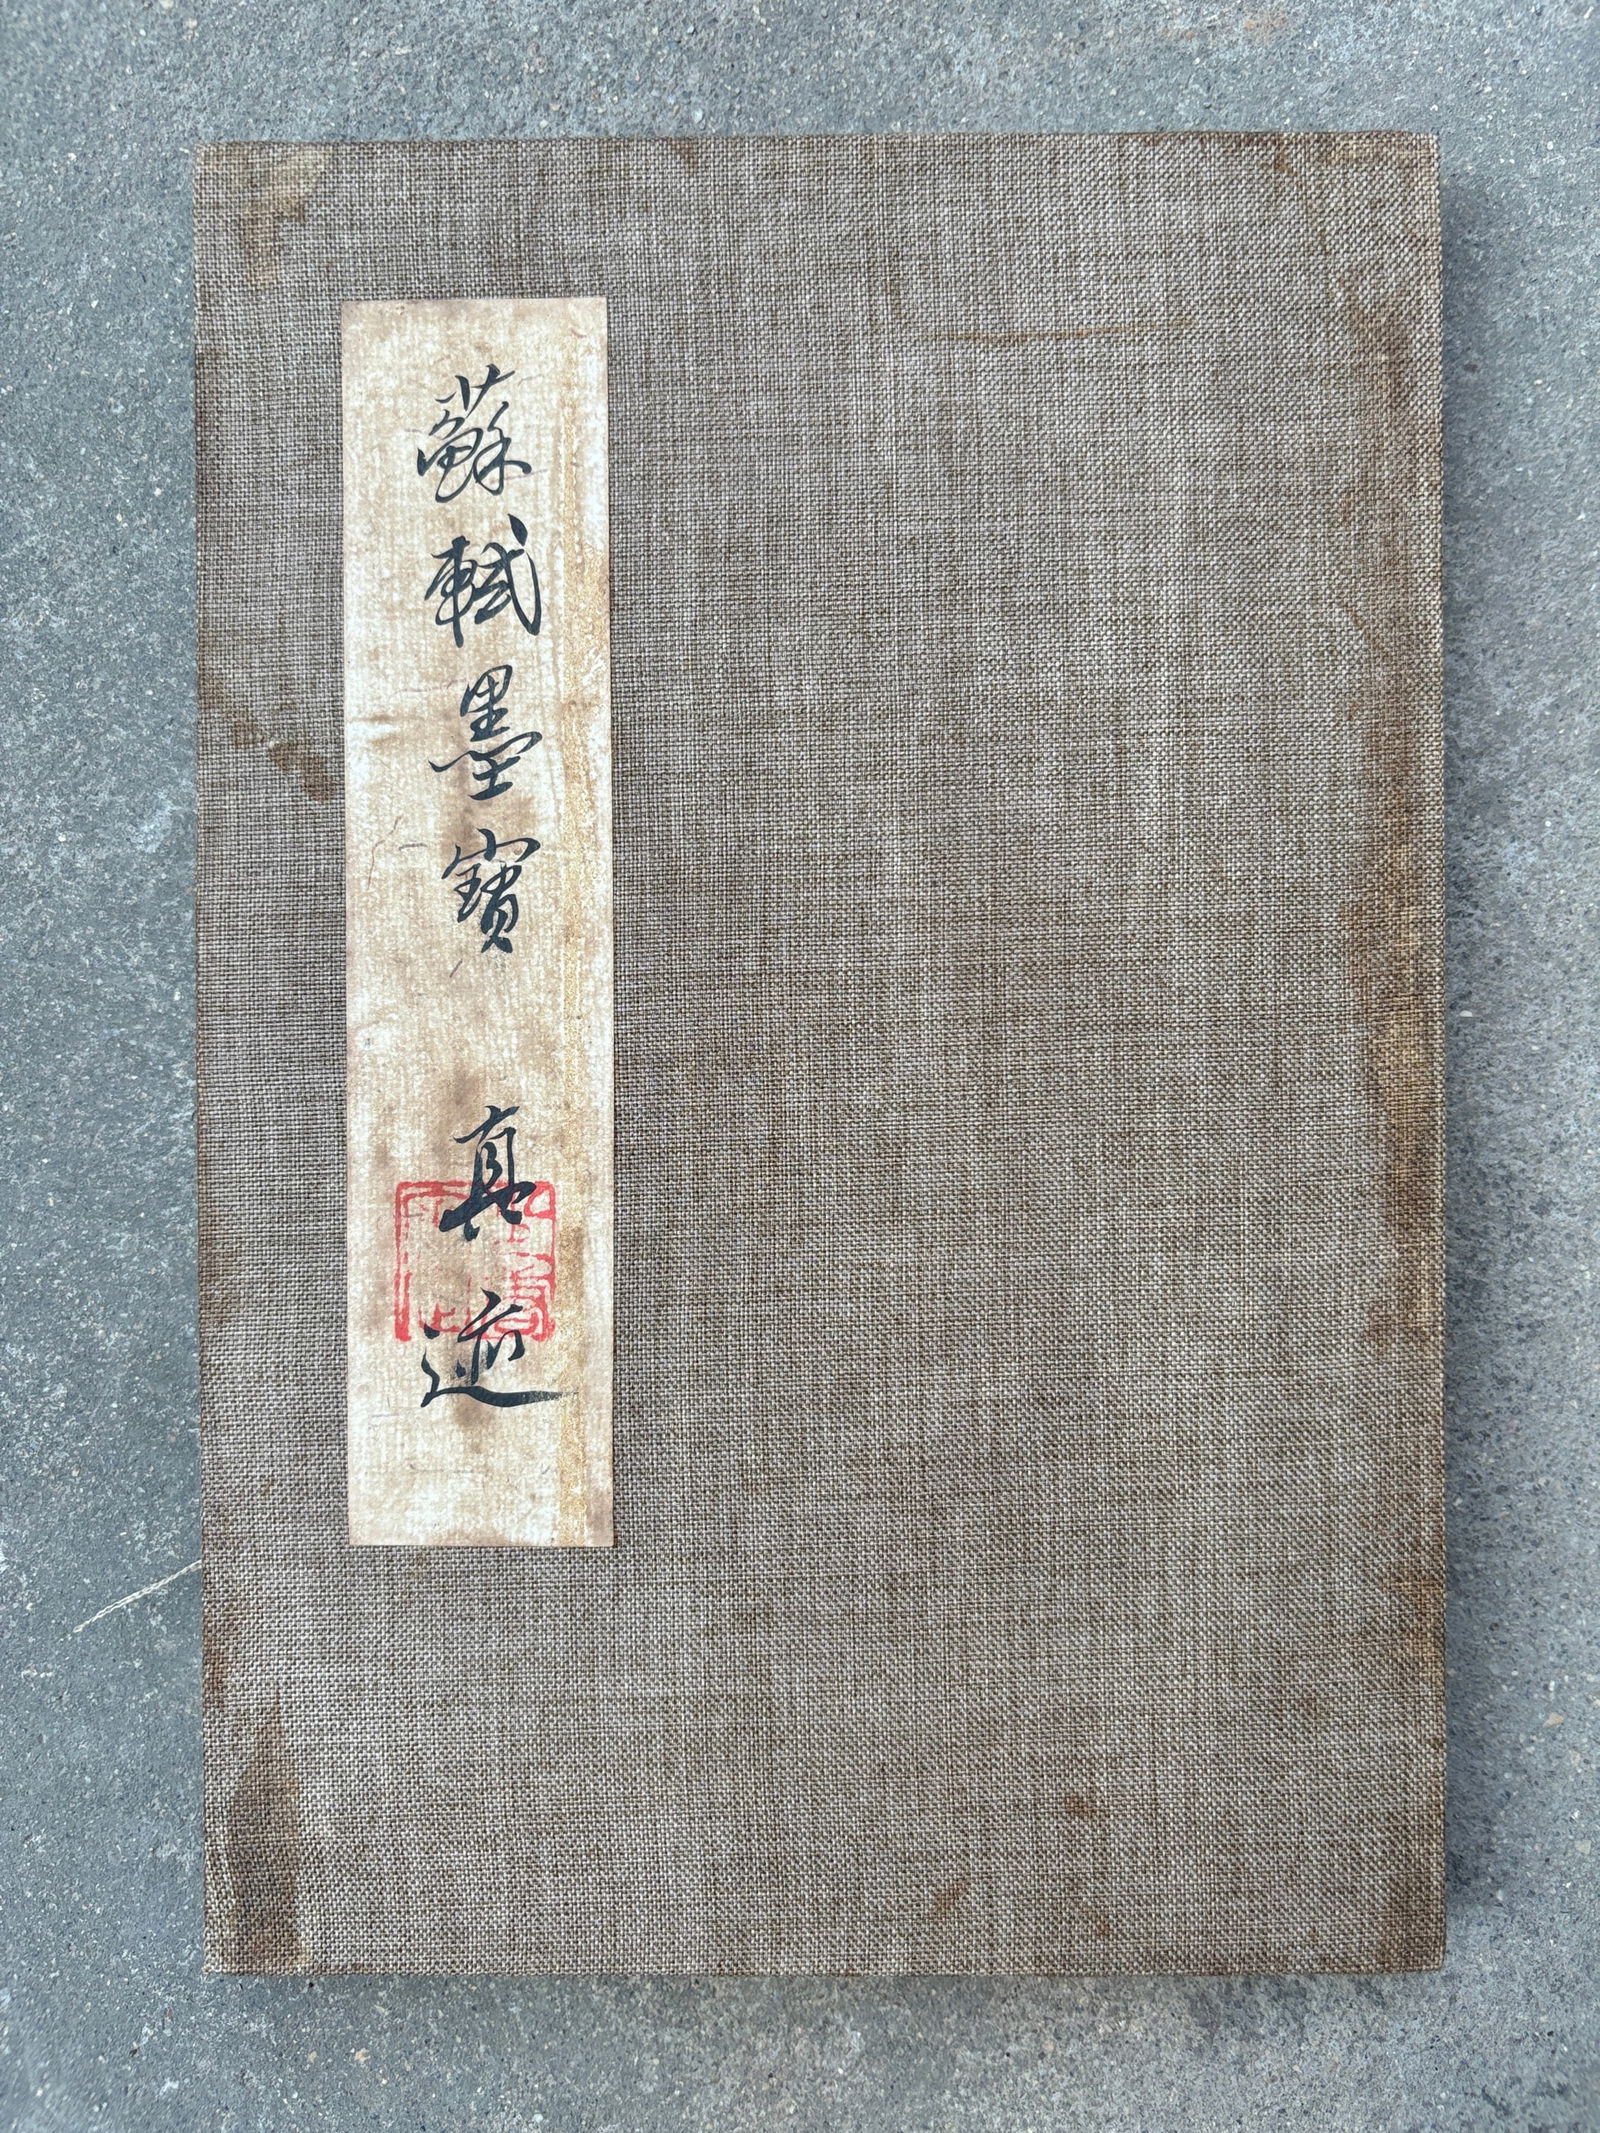 蘇軾墨寶 真迹